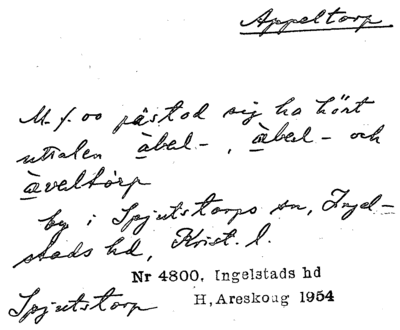 Appeltorp
M. f. oo påstod sig ha hört
uttalen àbel-, æ̀bel- och
æ̀veltòrp
by i Spjutstorps sn, Ingel-
stads hd, Krist. l.
Nr 4800, Ingelstads hd
Spjutstorp H, Areskoug 1954